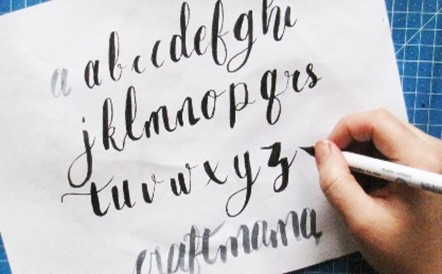 a abccdefghi
jklmnopqrs
tuvwxyz
craftmama